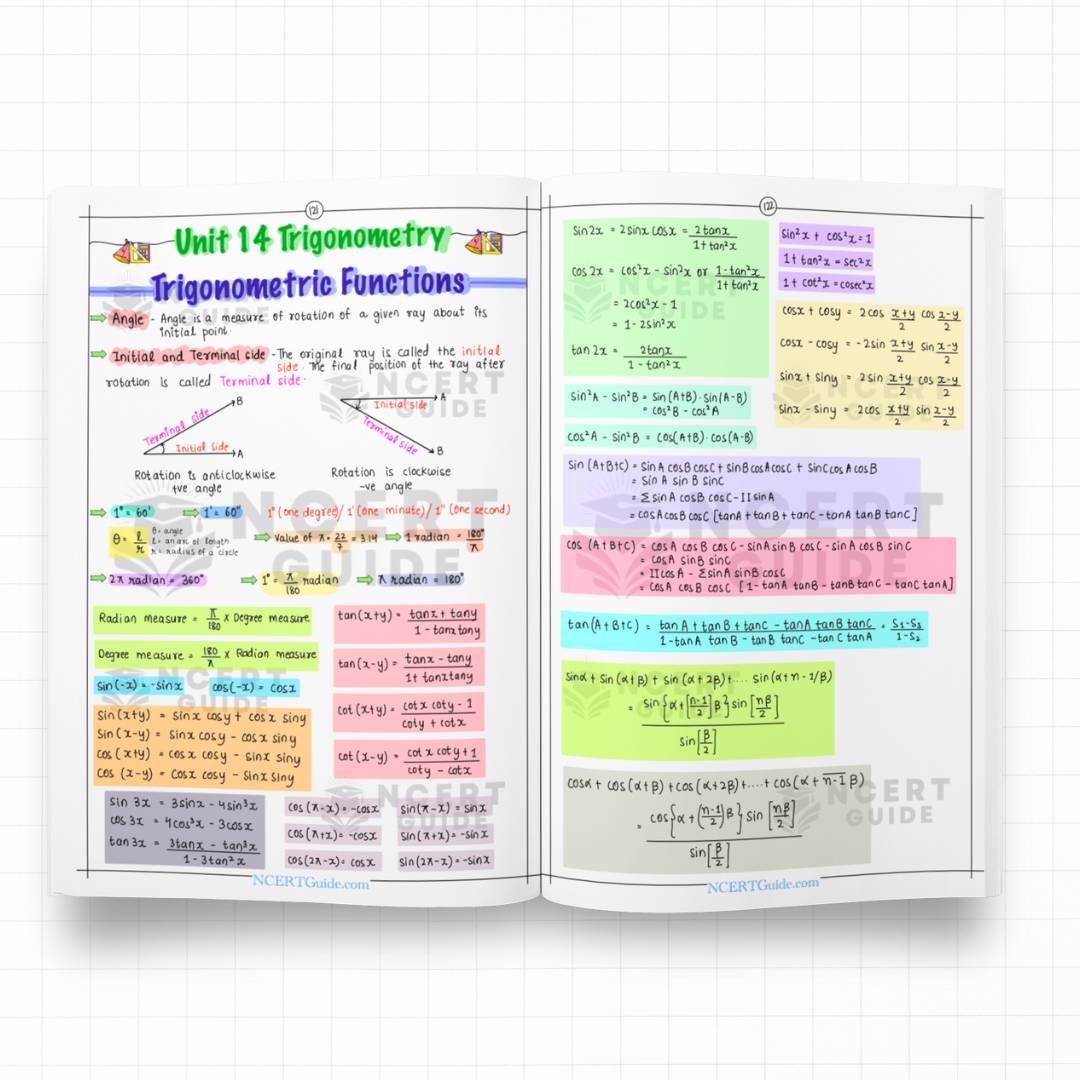 121
Unit 14 Trigonometry
Trigonometric Functions
Angle - Angle is a measure of rotation of a given ray about its
initial point.
Initial and Terminal side - The original ray is called the initial
side. The final position of the ray after
rotation is called Terminal side.
B
Terminal side
Initial side
A
Rotation is anticlockwise
+ve angle
A
Initial side
Terminal side
B
Rotation is clockwise
-ve angle
1° = 60' 1' = 60" 1° (one degree)/ 1' (one minute)/ 1" (one second)
θ = l/r θ = angle
l = an arc of length
r = radius of a circle
Value of π = 22/7 = 3.14 1 radian = 180°/π
2π radian = 360° 1° = π/180 radian π radian = 180°
Radian measure = π/180 x Degree measure
Degree measure = 180/π x Radian measure
sin(-x) = -sinx cos(-x) = cosx
sin(x+y) = sinx cosy + cosx siny
sin(x-y) = sinx cosy - cosx siny
cos(x+y) = cosx cosy - sinx siny
cos (x-y) = cosx cosy - sinx siny
tan(x+y) = tanx + tany / 1 - tanxtany
tan(x-y) = tanx - tany / 1 + tanxtany
cot(x+y) = cotx coty - 1 / coty + cotx
cot(x-y) = cotx coty + 1 / coty - cotx
sin 3x = 3sinx - 4sin³x
cos 3x = 4cos³x - 3cosx
tan 3x = 3tanx - tan³x / 1 - 3tan²x
cos (π-x) = -cosx
cos (π+x) = -cosx
cos(2π-x) = cosx
sin(π-x) = sinx
sin(π+x) = -sinx
sin(2π-x) = -sinx
NCERTGuide.com
122
sin2x = 2sinx cosx = 2tanx / 1+tan²x
cos 2x = cos²x - sin²x or 1-tan²x / 1+tan²x
= 2cos²x - 1
= 1 - 2sin²x
tan 2x = 2tanx / 1 - tan²x
sin²x + cos²x = 1
1 + tan²x = sec²x
1 + cot²x = cosec²x
cosx + cosy = 2cos x+y/2 cos x-y/2
cosx - cosy = -2sin x+y/2 sin x-y/2
sinx + siny = 2sin x+y/2 cos x-y/2
sinx - siny = 2cos x+y/2 sin x-y/2
sin²A - sin²B = sin(A+B)·sin(A-B)
= cos²B - cos²A
cos²A - sin²B = cos(A+B)·cos(A-B)
sin (A+B+C) = sinA cosB cosC + sinB cosA cosC + sinC cosA cosB
= sinA sin B sinC
= Σ sinA cosB cosC - Π sinA
= cosA cosB cosC [tanA + tanB + tanC - tanA tanB tanC]
cos (A+B+C) = cosA cosB cosC - sinA sinB cosC - sinA cosB sinC
= cosA sinB sinC
= Π cosA - Σ sinA sinB cosC
= cosA cosB cosC [1 - tanA tanB - tanB tanC - tanC tanA]
tan(A+B+C) = tanA + tanB + tanC - tanA tanB tanC / 1-tanA tanB - tanB tanC - tanC tanA = S₁-S₃ / 1-S₂
sinα + sin (α+β) + sin (α+2β) +.... sin(α+n-1/β)
= sin{α + [n-1/2]β} sin[nβ/2] / sin[β/2]
cosα + cos (α+β) + cos (α+2β) +....+ cos(α + n-1 β)
= cos{α + (n-1/2)β} sin [nβ/2] / sin[β/2]
NCERTGuide.com
NCERT
GUIDE
NCERT
GUIDE
NCERT
GUIDE
NCERT
GUIDE
NCERT
GUIDE
NCERT
GUIDE
NCERT
GUIDE